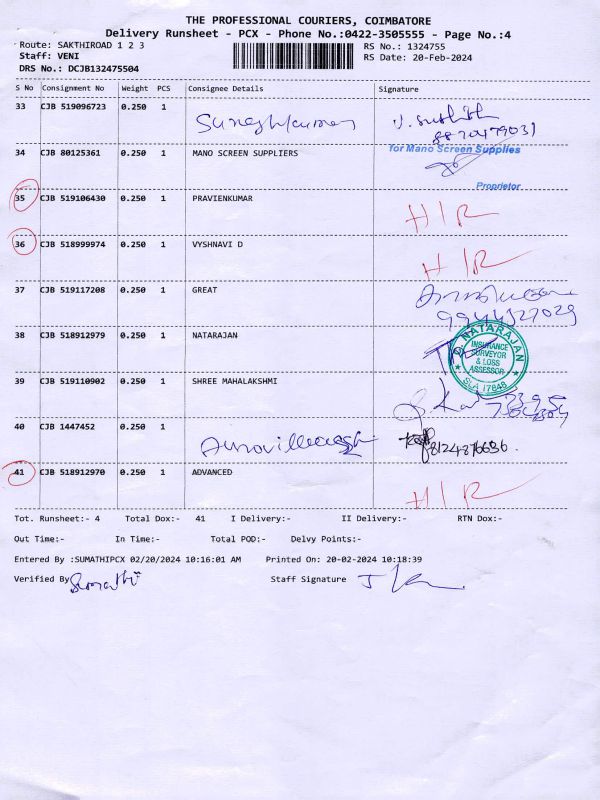 THE PROFESSIONAL COURIERS, COIMBATORE
Delivery Runsheet - PCX - Phone No.:0422-3505555 - Page No.:4
Route: SAKTHIROAD 1 2 3
RS No.: 1324755
Staff: VENI
RS Date: 20-Feb-2024
DRS No.: DCJB132475504
S No Consignment No Weight PCS Consignee Details Signature
33 CJB 519096723 0.250 1
8870479031
34 CJB 80125361 0.250 1 MANO SCREEN SUPPLIES for Mano Screen Supplies
Proprietor
35 CJB 519106430 0.250 1 PRAVIENKUMAR H/R
36 CJB 518999974 0.250 1 VYSHNAVI D H/R
37 CJB 519117208 0.250 1 GREAT
9944327029
38 CJB 518912979 0.250 1 NATARAJAN
D. NATARAJAN
INSURANCE
SURVEYOR
& LOSS
ASSESSOR
SLA 17848
39 CJB 519110902 0.250 1 SHREE MAHALAKSHMI
40 CJB 1447452 0.250 1 8124876636.
41 CJB 518912970 0.250 1 ADVANCED H/R
Tot. Runsheet:- 4 Total Dox:- 41 I Delivery:- II Delivery:- RTN Dox:-
Out Time:- In Time:- Total POD:- Delvy Points:-
Entered By :SUMATHIPCX 02/20/2024 10:16:01 AM Printed On: 20-02-2024 10:18:39
Verified By Sumathi Staff Signature